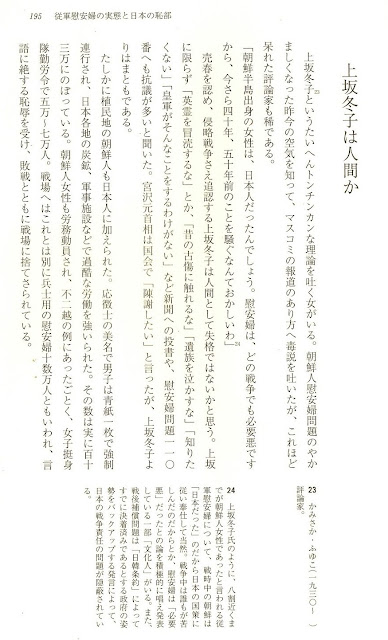 195　従軍慰安婦の実態と日本の恥部
上坂冬子は人間か
上坂冬子23というたいへんトンチンカンな理論を吐く女がいる。朝鮮人慰安婦問題のやか
ましくなった昨今の空気を知って、マスコミの報道のあり方へ毒説を吐いたが、これほど
呆れた評論家も稀である。
「朝鮮半島出身の女性は、日本人だったんでしょう。慰安婦は、どの戦争でも必要悪です
から、今さら四十年、五十年前のことを騒ぐなんておかしいわ」24
売春を認め、侵略戦争さえ追認する上坂冬子は人間として失格ではないかと思う。上坂
に限らず「英霊を冒涜するな」とか、「昔の古傷に触れるな」「遺族を泣かすな」「知りた
くない」「皇軍がそんなことをするわけがない」など新聞への投書や、慰安婦問題一一〇
番へも抗議が多いと聞いた。宮沢元首相は国会で「陳謝したい」と言ったが、上坂冬子よ
りはまともである。
たしかに植民地の朝鮮人も日本人に加えられた。応徴士の美名で男子は青紙一枚で強制
連行され、日本各地の炭鉱、軍事施設などで過酷な労働を強いられた。その数は実に百十
三万にのぼっている。朝鮮人女性も労務動員され、不二越の例にあったごとく、女子挺身
隊勤労令で五万〜七万人。戦場へはこれとは別に兵士用の慰安婦十数万人ともいわれ、言
語に絶する恥辱を受け、敗戦とともに戦場に捨てさられている。
23　かみさか・ふゆこ（一九三〇―　）
評論家。
24　上坂冬子氏のように、八割近くま
でが朝鮮人女性であったと言われる従
軍慰安婦について、戦時中の朝鮮は
「日本だった」のだから日本の国策に
従い奉仕して当然。戦争中は誰もが苦
しんだのだからとか、慰安婦は「必要
悪」だったとの論を積極的に唱え発表
している一部「文化人」がいる。また、
戦後補償問題は「日韓条約」によって
すでに決着済みであるとする政府の姿
勢をバックアップする発言によって、
日本の戦争責任の問題が隠蔽されてい
る。